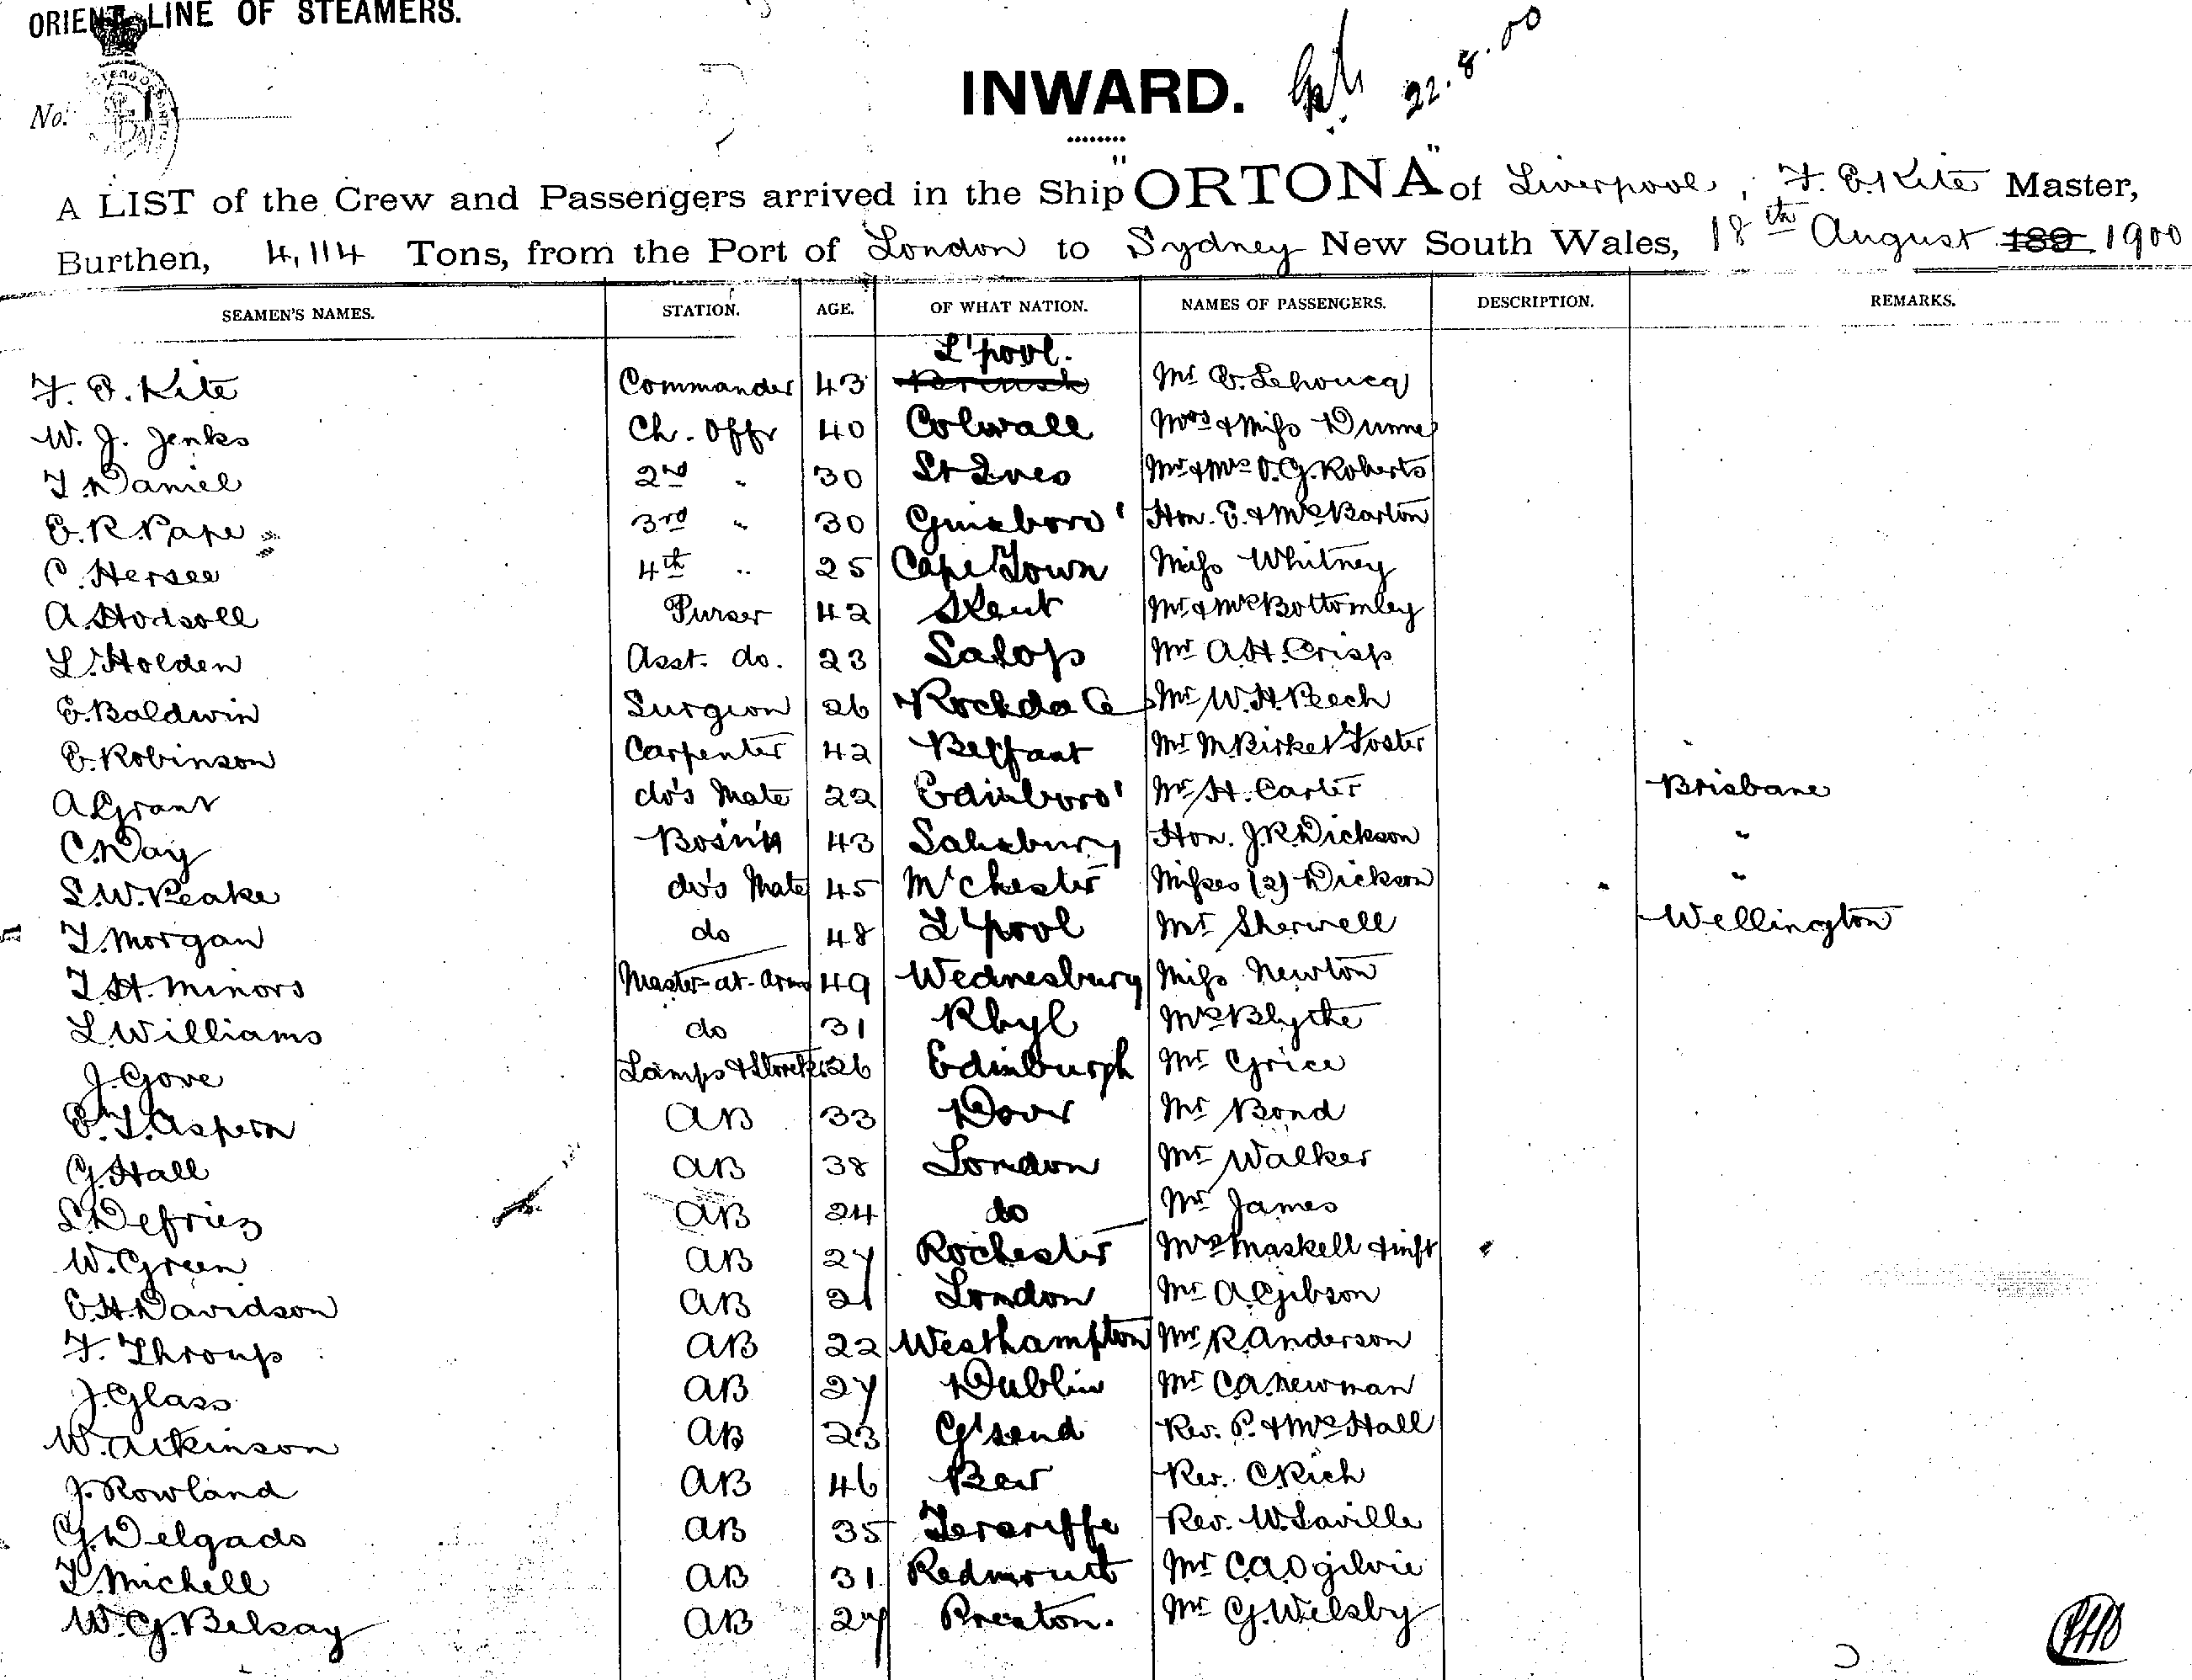 ORIENT LINE OF STEAMERS.
INWARD. 22.8.00
No. 1
A LIST of the Crew and Passengers arrived in the Ship "ORTONA" of Liverpool, F. E. Kite Master,
Burthen, 4,114 Tons, from the Port of London to Sydney New South Wales, 18th August 189 1900
SEAMEN'S NAMES. STATION. AGE. OF WHAT NATION. NAMES OF PASSENGERS. DESCRIPTION. REMARKS.
L'pool.
F. E. Kite Commander 43 British Mr E. Lehoucq
W. J. Jenks Ch. Offr 40 Colwall Mrs & Miss Dunne
T. Daniel 2nd " 30 St Ives Mr & Mrs O. G. Roberts
E. R. Pape 3rd " 30 Guisboro' Hon. E. & Mrs Barton
C. Hersee 4th " 25 Cape Town Miss Whitney
A. Hodsoll Purser 42 Kent Mr & Mrs Bottomley
L. Holden Asst. do. 23 Salop Mr A. H. Crisp
E. Baldwin Surgeon 26 Rochdale Mr W. H. Peech
E. Robinson Carpenter 42 Belfast Mr M. Birket Foster
A. Grant do's Mate 22 Edinboro' Mr H. Carter Brisbane
C. Day Bos'n 43 Salisbury Hon. J. R. Dickson "
S. W. Peake do's Mate 45 M'chester Misses (2) Dickson "
T. Morgan do 48 L'pool Mr Sherwell Wellington
T. H. Minors Master-at-Arms 49 Wednesbury Miss Newton
L. Williams do 31 Rhyl Mrs Blythe
J. Gove Lamps & Storekr 26 Edinburgh Mr Grice
P. T. Aspern AB 33 Dover Mr Bond
G. Hall AB 38 London Mr Walker
S. Defriez AB 24 do Mr James
W. Green AB 27 Rochester Mrs Maskell & inft
E. H. Davidson AB 21 London Mr A. Gibson
F. Throup AB 22 Westhampton Mr R. Anderson
J. Glass AB 27 Dublin Mr C. A. Newman
W. Atkinson AB 23 G'send Rev. P. & Mrs Hall
J. Rowland AB 46 Beer Rev. C. Rich
G. Delgado AB 35 Teneriffe Rev. W. Saville
T. Michell AB 31 Redmouth Mr C. A. Ogilvie
W. G. Belsay AB 27 Preston. Mr G. Welsby